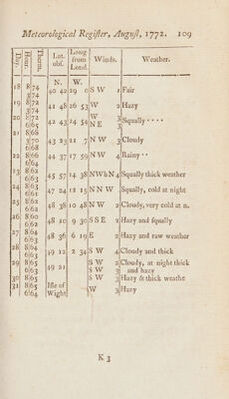 Meteorological Register, August, 1772. 109
Day. Hour. Therm. Lat. obs. Long from Lond. Winds. Weather.
N. W.
18 8 74 40 42 29 0 S W 2 Fair
3 74
19 8 72 41 48 26 53 W 2 Hazy
3 74
20 8 72 42 43 24 54 W 3 Squally
6 65 N E 3
21 8 68
3 70 43 23 21 7 N W 3 Cloudy
6 68
22 8 66 44 37 17 59 N W 4 Rainy
6 64
23 8 62 45 57 14 38 NWbN 4 Squally thick weather
6 63
24 8 63 47 24 12 15 N N W Squally, cold at night
6 61
25 8 62 48 38 10 48 N W 2 Cloudy, very cold at n.
6 61
26 8 60 48 10 9 30 S S E 2 Hazy and squally
6 62
27 8 64 48 36 6 19 E Hazy and raw weather
6 63
28 8 64 49 12 2 34 S W 4 Cloudy and thick
6 63
29 8 65 49 21 S W 2 Cloudy, at night thick
6 63 S W 3 and hazy
30 8 65 S W 3 Hazy & thick weathe
31 8 65 Isle of W 3 Hazy
6 64 Wight
K 3